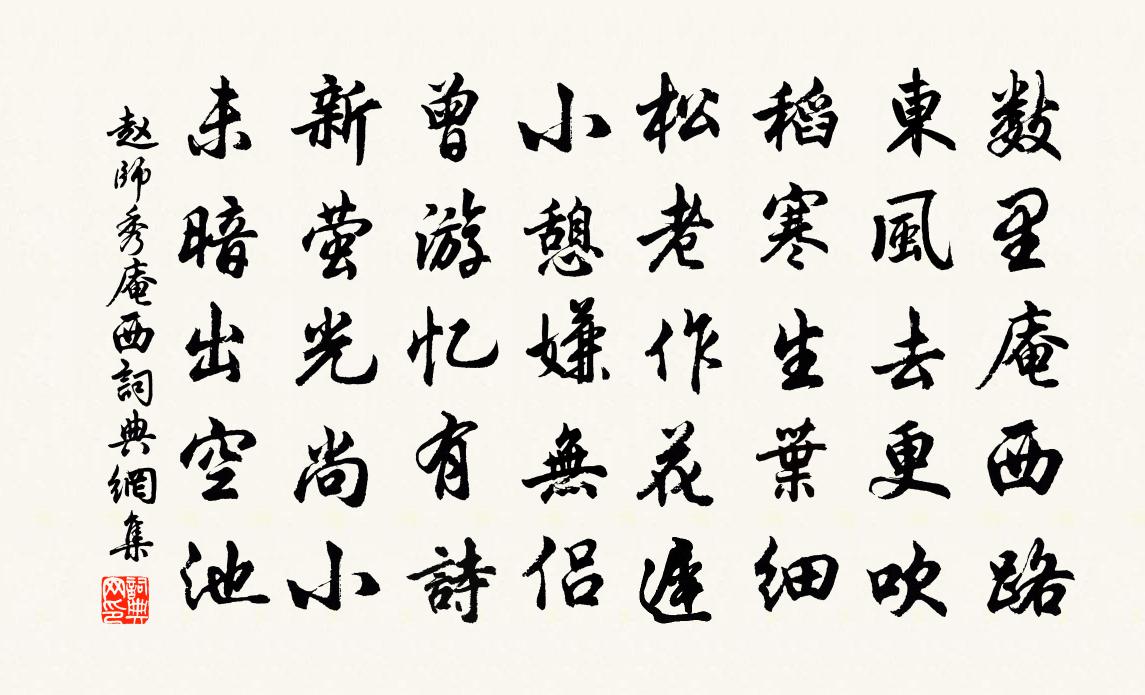 数里庵西路
東風去更吹
稻寒生葉細
松老作花遲
小憩嫌無侣
曾游忆有詩
新萤光尚小
未暗出空池
赵師秀庵西詞典網集
詞典网印